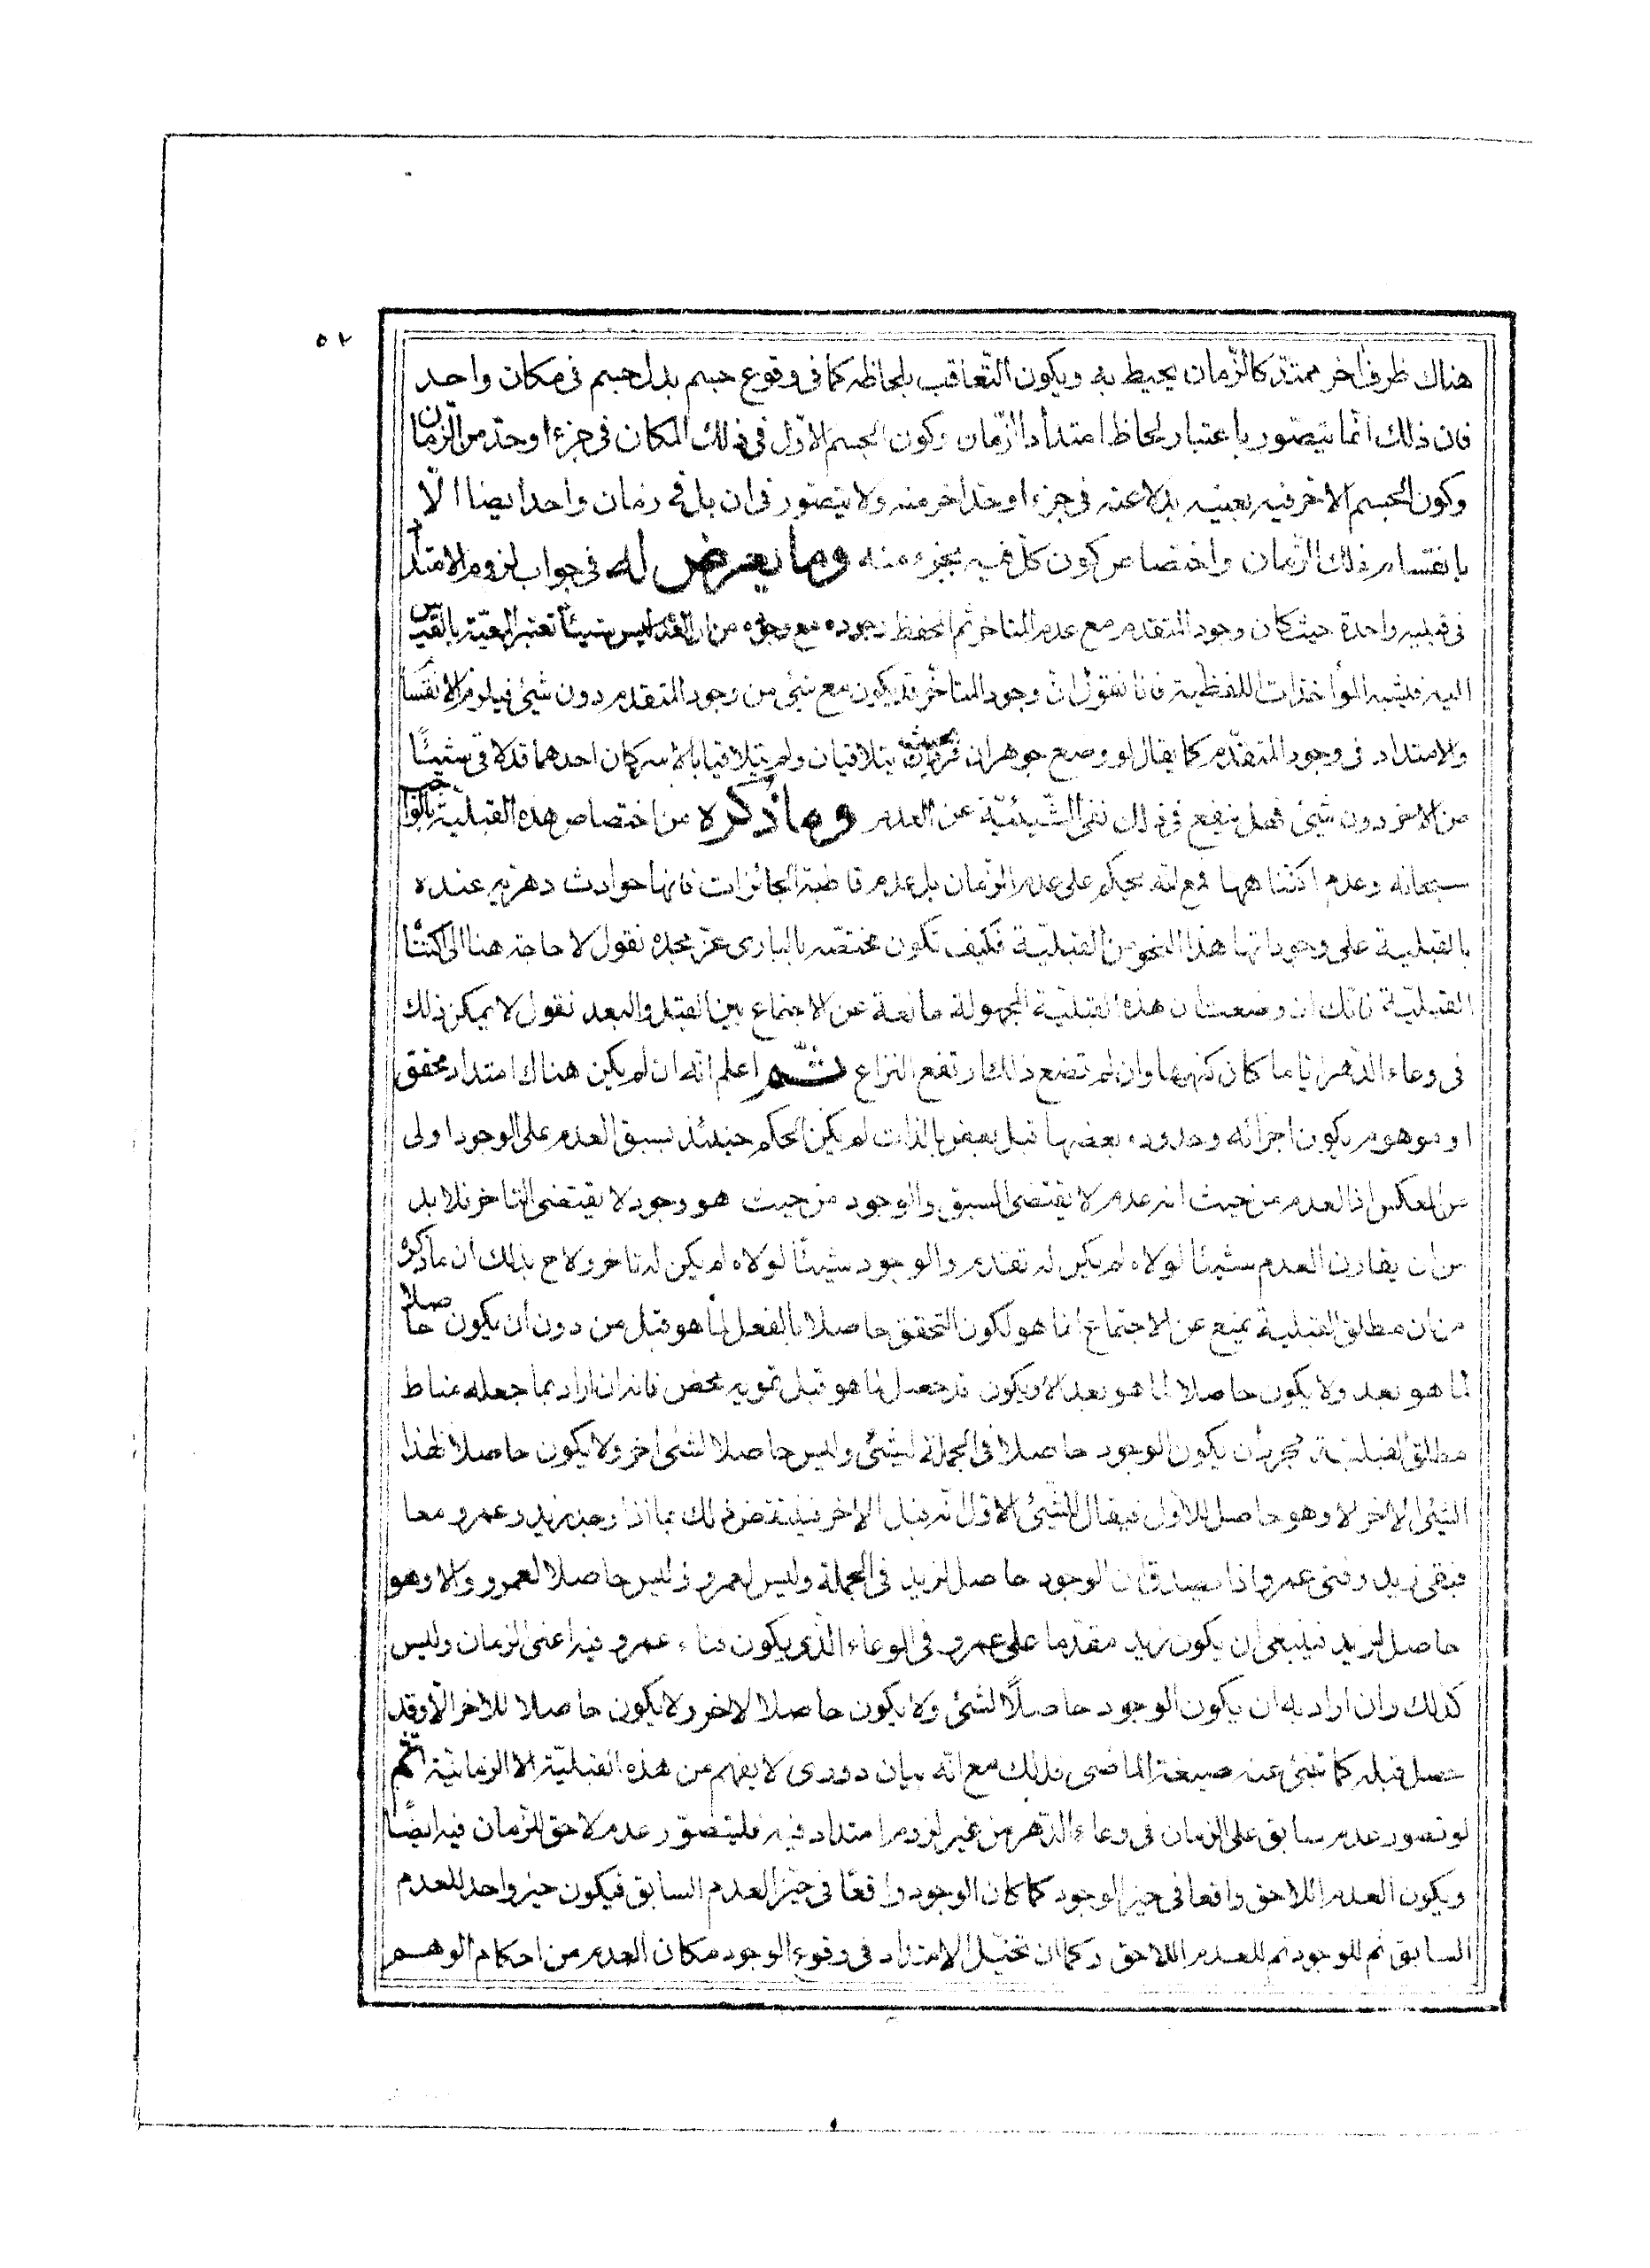 ٥٢
هناك ظرف اخر ممتدّ كالزّمان يحيط به ويكون التّعاقب بلحاظه كما فى وقوع جسم بدل جسم فى مكان واحد
فان ذلك انّما يتصّور باعتبار لحاظ امتداد الزّمان وكون الجسم الاوّل فى ذلك المكان فى جزء او حدّ من الزّمان
وكون الجسم الاخر فيه بعينه بدلا عنه فى جزء او حدّ اخر منه ولا يتصّور فى ان بل فى زمان واحد ايضا الّا
بانقسام ذلك الزّمان واختصاص كون كلّ فيه بجزء منه وما يعرض له فى جواب لزوم الامتداد
فى قبليه واحدة حيث كان وجود المتقدم مع عدم المتاخر ثم انحفظ وجوده مع وجوده من ان العدم ليس شيئاً تعتبر المعيّة بالقياس
اليه فيشبه المواخذات اللفظية فانا نقول ان وجود المتاخّر قد يكون مع شئ من وجود المتقدم دون شئ فيلزم الانقسام
والامتداد فى وجود المتقدّم كما يقال لو وضع جوهران فردان بحيث يتلاقيان ولم يتلاقيا بالاسر كان احدهما قد لاقى شيئًا
من الاخر دون شئ فهل ينفع فى ذلك نفى الشّيئيّة عن العدم وما ذكره من اختصاص هذه القبلية بالواجب
سبحانه وعدم اكتناهها فمع انّه يحكم على عدم الزّمان بل عدم قاطبة الجائزات فانها حوادث دهريه عنده
بالقبلية على وجوداتها هذا النحو من القبليّة فكيف تكون مختصّه بالبارى عزّ مجده نقول لا حاجة هنا الى اكتناه
القبليّة فانّك ان وضعت ان هذه القبليّة المجهولة مانعة عن الاجتماع بين القبل والبعد نقول لا يمكن ذلك
فى وعاء الدّهر ايّا ما كان كنهها وان لم تضع ذلك ارتفع النزاع ثمّ اعلم انّه ان لم يكن هناك امتداد محقق
او موهوم يكون اجزائه وحدوده بعضها قبل بعض بالذات لم يكن الحكم حينئذ بسبق العدم على الوجود اولى
من العكس اذ العدم من حيث انه عدم لا يقتضى السبق والوجود من حيث هو وجود لا يقتضى التاخر فلا بد
من ان يقارن العدم شيئا لولاه لم يكن له تقدم والوجود شيئا لولاه لم يكن له تاخر ولاح بذلك ان ما ذكره
من ان مطلق القبلية يمنع عن الاجتماع انما هو لكون التحقق حاصلا بالفعل لما هو قبل من دون ان يكون حاصلا
لما هو بعد ولا يكون حاصلا لما هو بعد الا ويكون قد حصل لما هو قبل تمويه محض فانه ان اراد بما جعله مناط
مطلق القبليّة مجرد ان يكون الوجود حاصلا فى الجملة لشئ وليس حاصلا لشئ اخر ولا يكون حاصلا لهذا
الشئ الاخر الا وهو حاصل للاول فيقال للشئ الاوّل انّه قبل الاخر فينتقض ذلك بما اذا وجد زيد وعمرو معا
فبقى زيد وفنى عمرو اذا يصدق ان الوجود حاصل لزيد فى الجملة وليس لعمرو وليس حاصلا لعمرو والا وهو
حاصل لزيد فينبغى ان يكون زيد مقدما على عمرو فى الوعاء الذى يكون فناء عمرو فيه اعنى الزمان وليس
كذلك وان اراد به ان يكون الوجود حاصلًا لشئ ولا يكون حاصلا لاخر ولا يكون حاصلا للاخر الّا وقد
حصل قبله كما تنبئ عنه صيغة الماضى فذلك مع انّه بيان دورى لا يفهم من هذه القبليّة الا الزمانيّة ثمّ
لو تصور عدم سابق على الزمان فى وعاء الدّهر من غير لزوم امتداد فيه فليتصوّر عدم لاحق للزّمان فيه ايضًا
ويكون العدم اللاحق واقعا فى حيز الوجود كما كان الوجود واقعًا فى حيّز العدم السابق فيكون حيز واحد للعدم
السابق ثم للوجود ثم للعدم اللاحق وكما ان تخيّل الامتداد فى وقوع الوجود مكان العدم من احكام الوهم